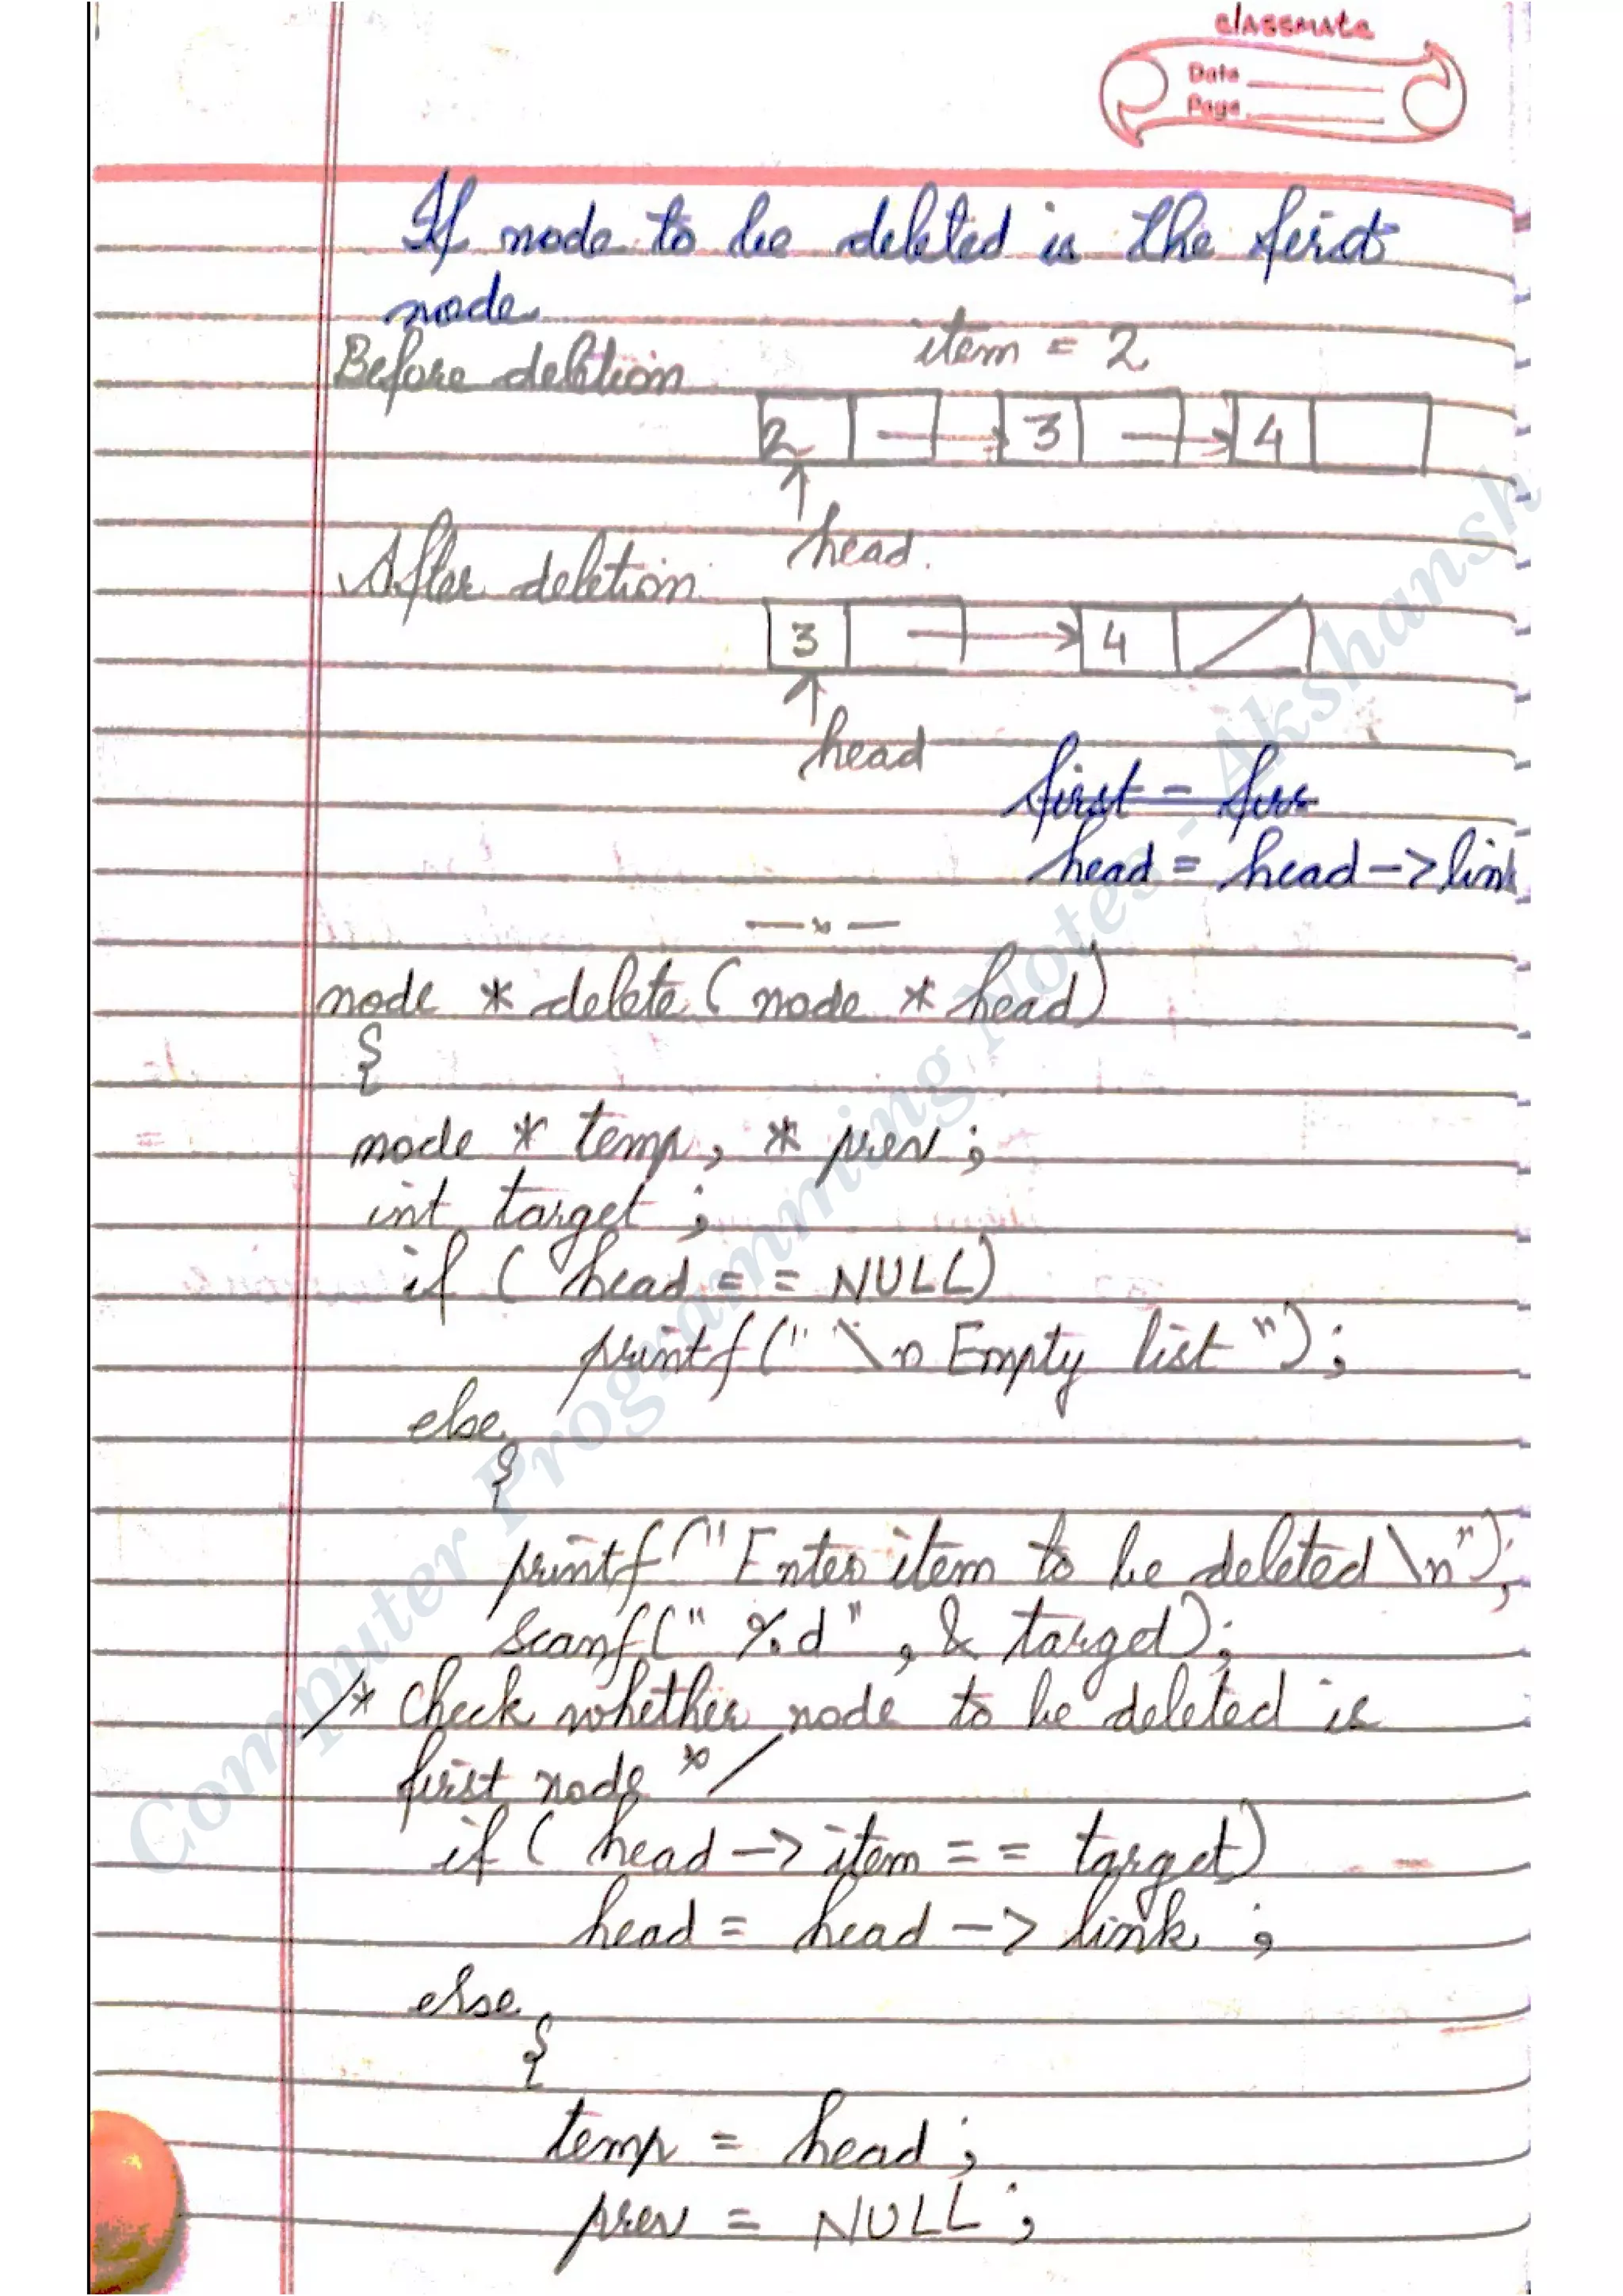 classmate
Date
Page
If node to be deleted is the first
node
Before deletion item = 2
2 3 4
head.
After deletion
3 4
head
first = firs
head = head -> link
— x —
node * delete ( node * head)
{
node * temp, * prev ;
int target ;
if ( head = = NULL)
printf (" \n Empty list ") ;
else
{
printf ("Enter item to be deleted \n");
scanf (" %d" , & target) ;
/* Check whether node to be deleted is
first node */
if ( head -> item = = target)
head = head -> link ;
else
{
temp = head ;
prev = NULL ;
Computer Programming Notes - Akshansh